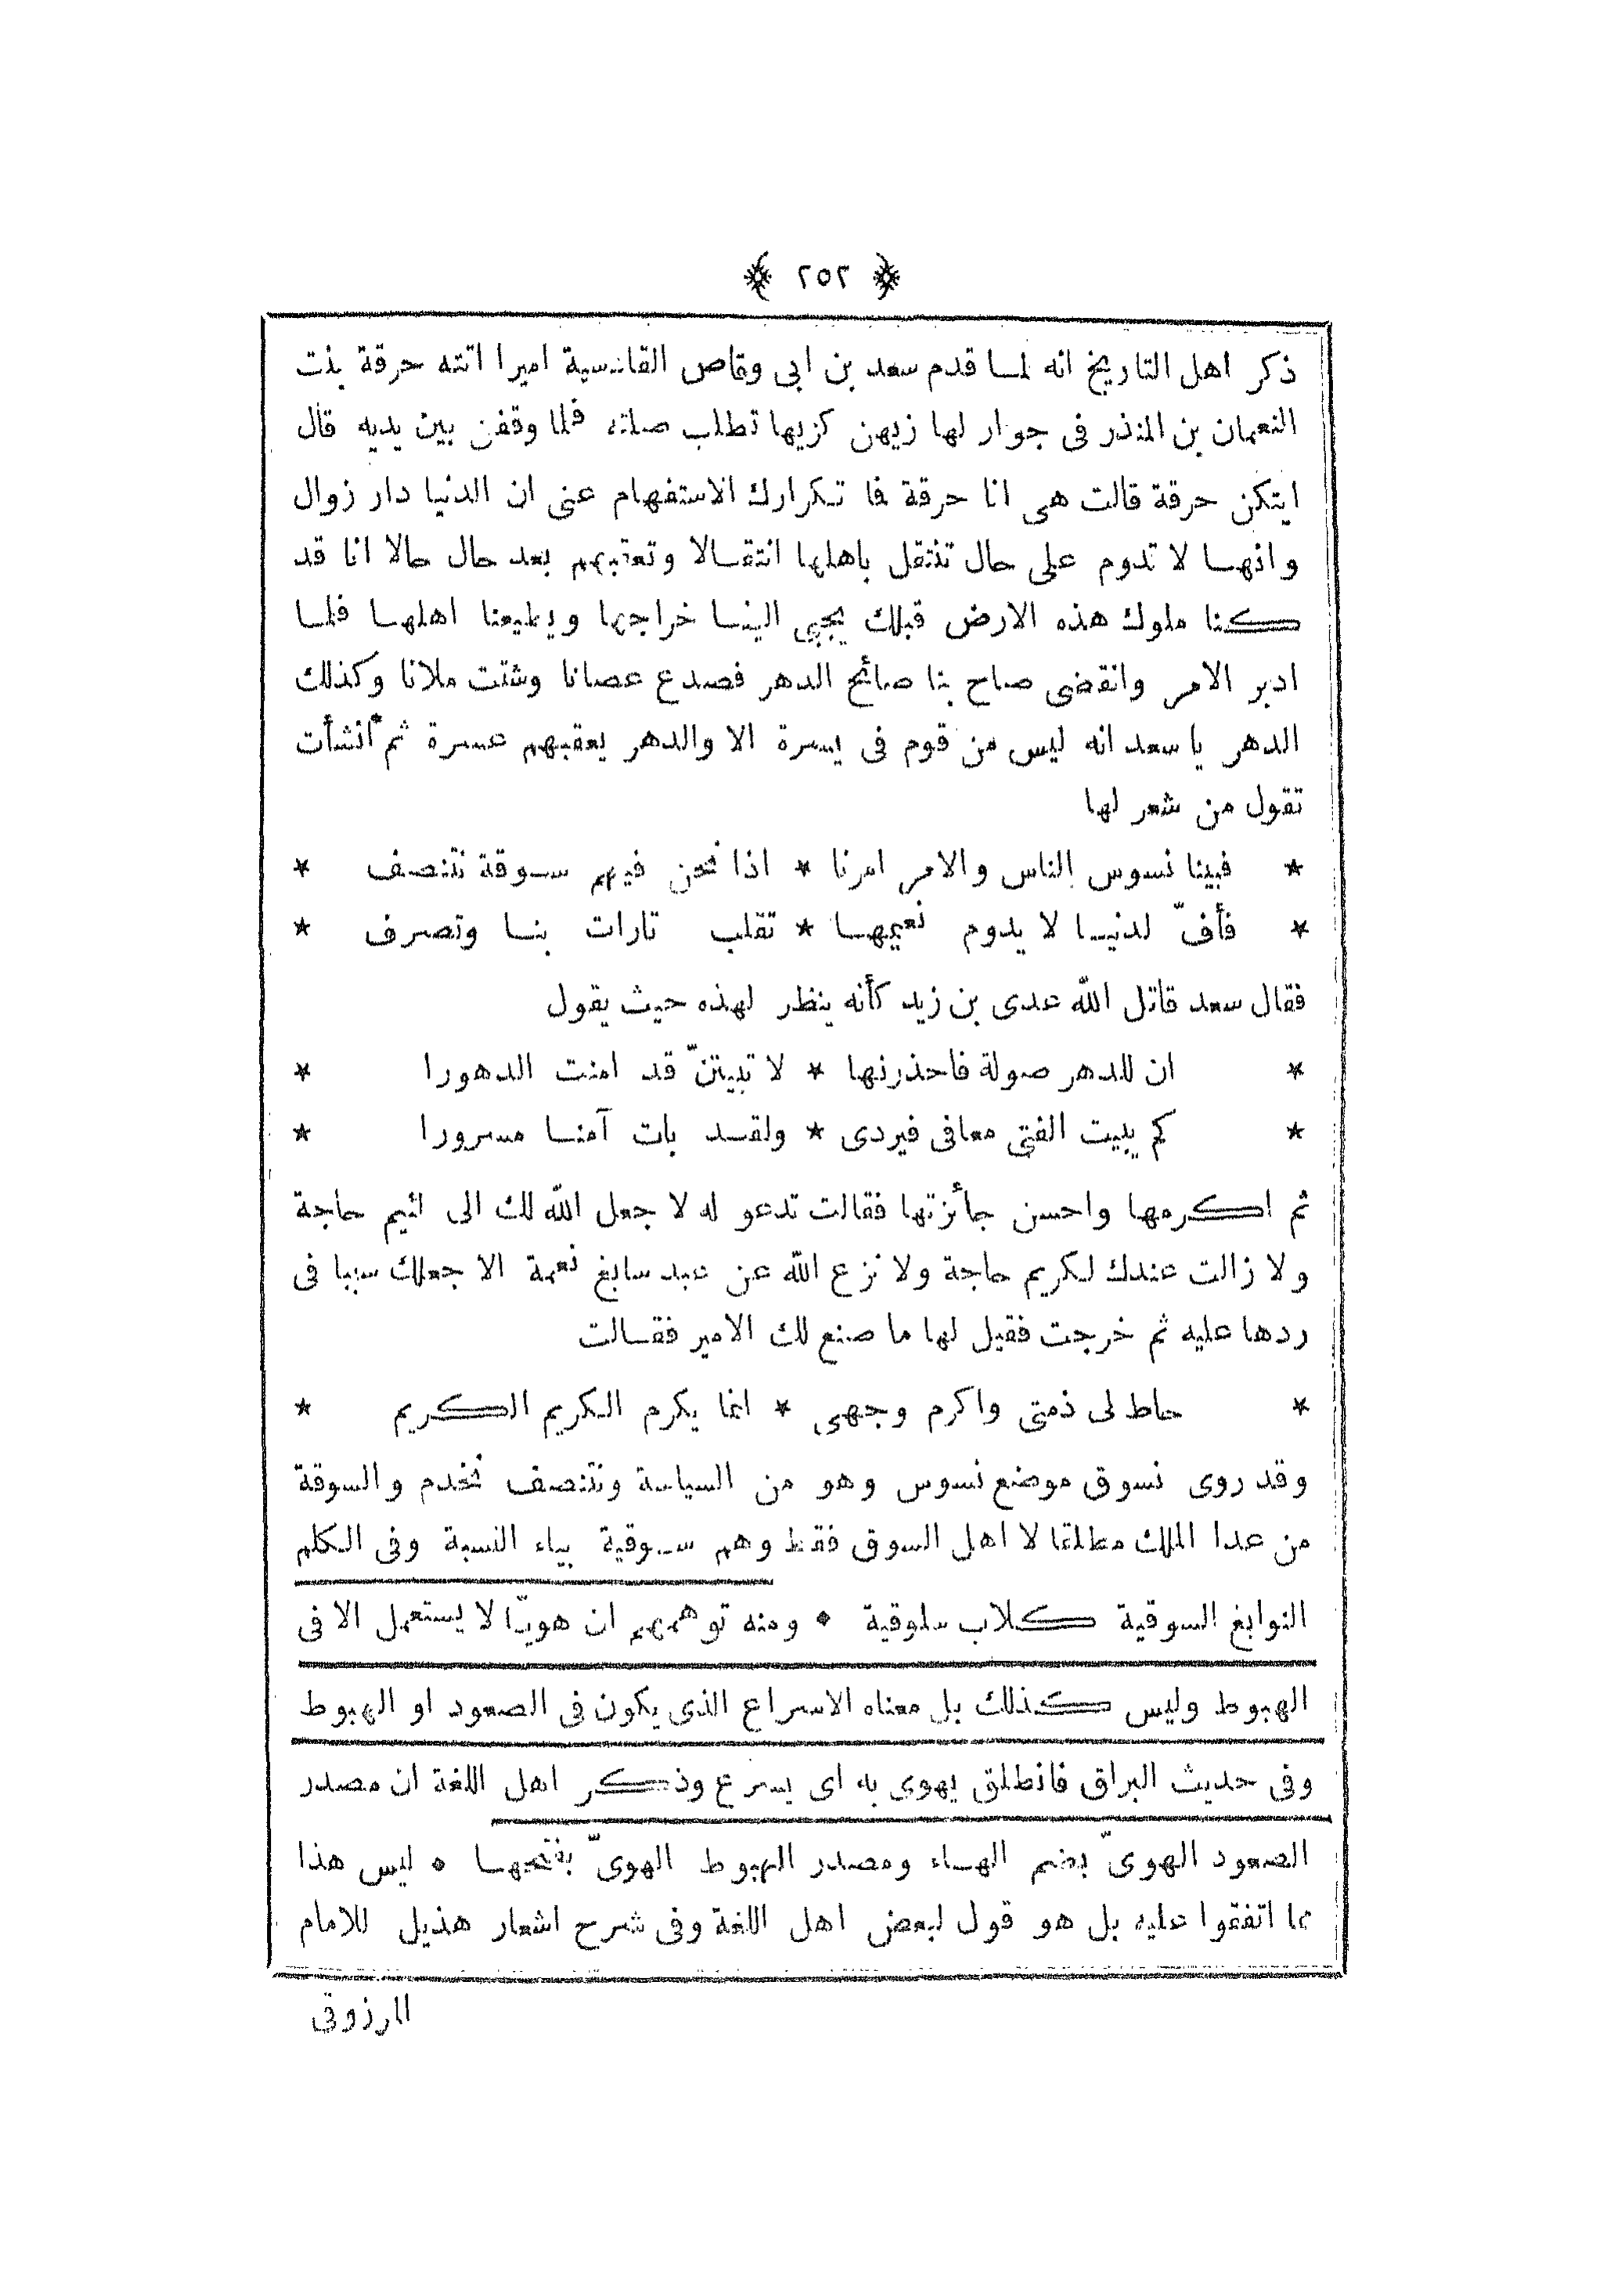 ﴿ ٢٥٢ ﴾
ذكر اهل التاريخ انه لما قدم سعد بن ابى وقاص القادسية اميرا اتته حرقة بنت
النعمان بن المنذر فى جوار لها زيهن كزيها تطلب صلته فلما وقفن بين يديه قال
ايتكن حرقة قالت هى انا حرقة فما تكرارك الاستفهام عنى ان الدنيا دار زوال
وانها لا تدوم على حال تنتقل باهلها انتقالا وتعقبهم بعد حال حالا انا قد
كنا ملوك هذه الارض قبلك يجبى الينا خراجها ويطيعنا اهلها فلما
ادبر الامر وانقضى صاح بنا صائح الدهر فصدع عصانا وشتت ملانا وكذلك
الدهر يا سعد انه ليس من قوم فى يسرة الا والدهر يعقبهم عسرة ثم أنشأت
تقول من شعر لها
* فبينا نسوس الناس والامر امرنا * اذا نحن فيهم سوقة نتنصف *
* فأفّ لدنيا لا يدوم نعيمها * تقلب تارات بنا وتصرف *
فقال سعد قاتل اللّه عدى بن زيد كأنه ينظر لهذه حيث يقول
* ان للدهر صولة فاحذرنها * لا تبيتنّ قد امنت الدهورا *
* كم يبيت الفتى معافى فيردى * ولقد بات آمنا مسرورا *
ثم اكرمها واحسن جائزتها فقالت تدعو له لا جعل اللّه لك الى لئيم حاجة
ولا زالت عندك لكريم حاجة ولا نزع اللّه عن عبد سابغ نعمة الا جعلك سببا فى
ردها عليه ثم خرجت فقيل لها ما صنع لك الامير فقالت
* حاط لى ذمتى واكرم وجهى * انما يكرم الكريم الكريم *
وقد روى نسوق موضع نسوس وهو من السياسة ونتنصف نخدم والسوقة
من عدا الملك مطلقا لا اهل السوق فقط وهم سوقية بياء النسبة وفى الكلم
النوابغ السوقية كلاب سلوقية * ومنه توهمهم ان هويّا لا يستعمل الا فى
الهبوط وليس كذلك بل معناه الاسراع الذى يكون فى الصعود او الهبوط
وفى حديث البراق فانطلق يهوى به اى يسرع وذكر اهل اللغة ان مصدر
الصعود الهوىّ بضم الهاء ومصدر الهبوط الهوىّ بفتحها * ليس هذا
مما اتفقوا عليه بل هو قول لبعض اهل اللغة وفى شرح اشعار هذيل للامام
المرزوقى